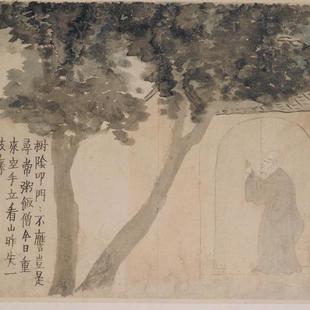 樹陰叩門〻不應豈是
尋常粥飯僧今日重
來空手立看山昨失一